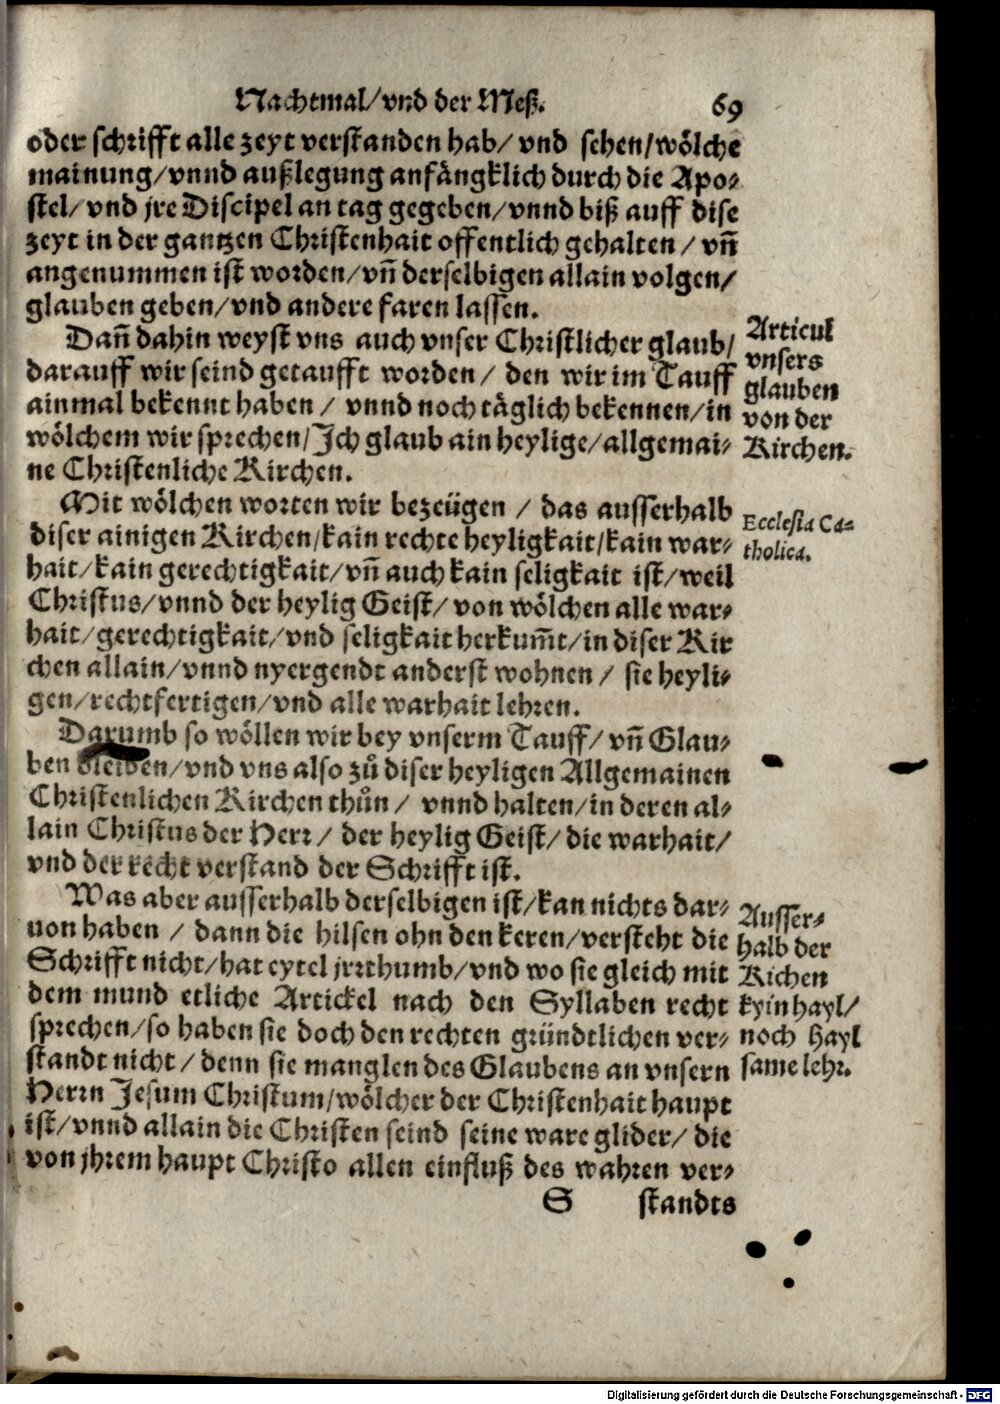 Nachtmal/vnd der Meß. 69
oder schrifft alle zeyt verstanden hab/ vnd sehen/wölche
mainung/vnnd außlegung anfängklich durch die Apo-
stel/ vnd jre Discipel an tag gegeben/vnnd biß auff dise
zeyt in der gantzen Christenhait offentlich gehalten / vñ
angenummen ist worden/vñ derselbigen allain volgen/
glauben geben/vnd andere faren lassen.
Dañ dahin weyst vns auch vnser Christlicher glaub/
darauff wir seind getaufft worden/ den wir im Tauff
ainmal bekennt haben / vnnd noch täglich bekennen/in
wölchem wir sprechen/Jch glaub ain heylige/allgemai-
ne Christenliche Kirchen.
Articul
vnsers
glauben
von der
Kirchen.
Mit wölchen worten wir bezeügen / das ausserhalb
diser ainigen Kirchen/kain rechte heyligkait/kain war-
hait/kain gerechtigkait/vñ auch kain seligkait ist/weil
Christus/vnnd der heylig Geist/von wölchen alle war-
hait/gerechtigkait/vnd seligkait herkum̃t/in diser Kir
chen allain/vnnd nyergendt anderst wohnen / sie heyli-
gen/rechtfertigen/vnd alle warhait lehren.
Ecclesia Ca-
tholica.
Darumb so wöllen wir bey vnserm Tauff/ vñ Glau-
ben bleiben/vnd vns also zů diser heyligen Allgemainen
Christenlichen Kirchen thůn / vnnd halten/in deren al-
lain Christus der Herr/ der heylig Geist/die warhait/
vnd der recht verstand der Schrifft ist.
Was aber ausserhalb derselbigen ist/kan nichts dar-
uon haben / dann die hilsen ohn den keren/versteht die
Schrifft nicht/hat eytel jrrthumb/vnd wo sie gleich mit
dem mund etliche Artickel nach den Syllaben recht
sprechen/so haben sie doch den rechten gründtlichen ver-
standt nicht/ denn sie manglen des Glaubens an vnsern
Herrn Jesum Christum/wölcher der Christenhait haupt
ist/vnnd allain die Christen seind seine ware glider/ die
von jhrem haupt Christo allen einfluß des wahren ver-
Ausser-
halb der
Kichen
kyin hayl/
noch hayl
same lehr.
S standts
Digitalisierung gefördert durch die Deutsche Forschungsgemeinschaft - DFG